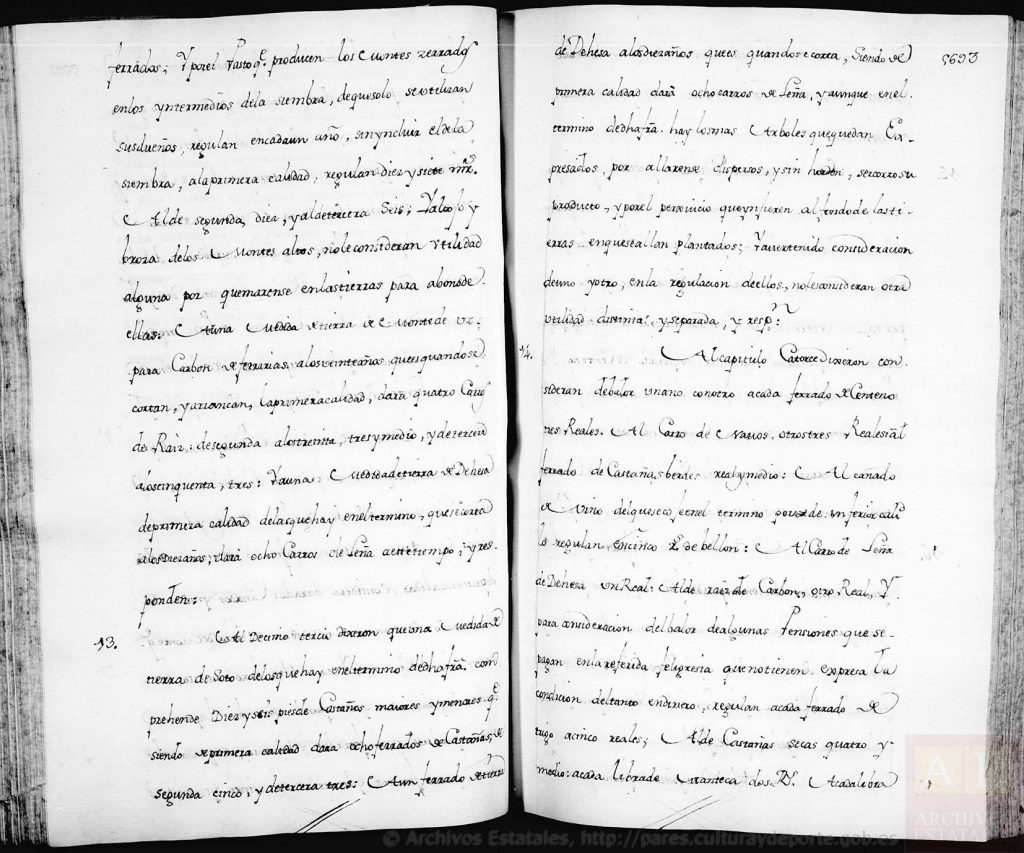 ferrados; Y por el Pasto q.e producen los Montes zerrados
en los yntermedios dela siembra, de que solo se utilizan
sus dueños, regulan en cada un año, sin yncluir el dela
siembra, ala primera calidad, regulan diez y siete mrs.
Al de segunda, diez, y al de tercera Seis; Yal
broza delos Montes altos, no le consideran Utilidad
alguna por quemarense en las tierras para abono de
ellas: A una Medida de tierra de Monte de
para Carbon de ferrarias, alos veinte años que es quando se
cortan, y arrancan, la primera calidad, dara quatro Carros
de Raiz: de segunda alos treinta, tres y medio, y de tercera
alos cinquenta, tres: Y a una Medida de tierra de Dehesa
de primera calidad delas que hay en el termino, que se corta
alos Diez años, dará ocho Carros de Leña en este tiempo, y res-
ponden:
13. Al Decimo tercio dixeron que una Medida de
tierra de Soto delos que hay en el termino de dha fra. com
prehende Diez y seis pies de Castaños maiores y menores q.e
siendo de primera calidad dara ocho ferrados de Castañas, de
segunda cinco, y de tercera tres: A un ferrado de tierra
de Dehesa alos diez años que es quando se corta, Siendo de
primera calidad dará ocho carros de Leña, y aunque en el
termino de dha fra. hay los mas Arboles que quedan Ex-
presados, por allarense dispersos, y sin horden, ser corto su
producto, y por el perjuicio que ynfieren al fondo de las ti-
erras en que se allan plantados; Y a vertenido consideracion
de uno y otro, en la regulacion de ellos, no le consideran otra
utilidad distinta, y separada, y resp.n:
14. Al capitulo Catorce dixeron con
sideran de balor un ano con otro a cada ferrado de Centeno
tres Reales. Al Carro de Navos, otros tres Reales: al
ferrado de Castañas berdes real y medio: Al cañado
de Vino del que se coje en el termino por ser de inferior calid.
lo regulan en cinco R.s de bellon: Al Carro de Leña
de Dehesa un Real: Al de raiz de Carbon, otro Real, Y
para consideracion del balor de algunas Pensiones que se
pagan en la referida feligresia que no tienen expresa la
condicion del tanto en dinero, regulan a cada ferrado de
trigo a cinco reales; Al de Castañas secas quatro y
medio: a cada libra de Manteca dos R.s A cada libra
© Archivos Estatales, http://pares.culturaydeporte.gob.es
ARCHIVOS
ESTATALES